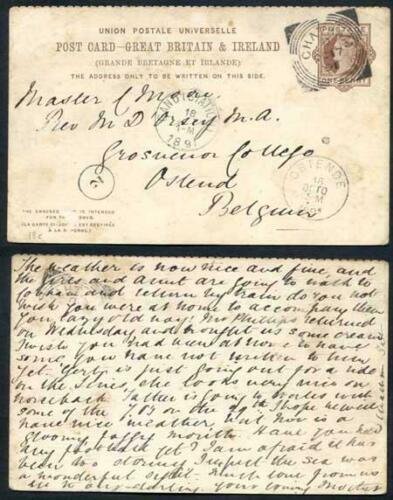 UNION POSTALE UNIVERSELLE
POST CARD—GREAT BRITAIN & IRELAND
(GRANDE BRETAGNE ET IRLANDE)
THE ADDRESS ONLY TO BE WRITTEN ON THIS SIDE.
POSTAGE
ONE PENNY
Master C
Rev M D'Orsey M.A.
Grosvenor College
Ostend
Belgium
18
OSTENDE
18
OCTO
The weather is now nice and fine, and
the girls and aunt are going to walk to
Cobham and return by train do you not
wish you were at home to accompany them
you lazy old boy? returned
on Wednesday and brought us some cream
I wish you had been at home to have
some, you have not written to him
yet. is just going out for a ride
on the , she looks very nice on
horseback. Father is going to with
some of the on the 29th I hope he will
have nice weather, but Nov is a
gloomy foggy month. Have you had
any football yet? I am afraid it has
been too stormy. I expect the sea was
a wonderful sight. With love from us
all my darling your loving Mother